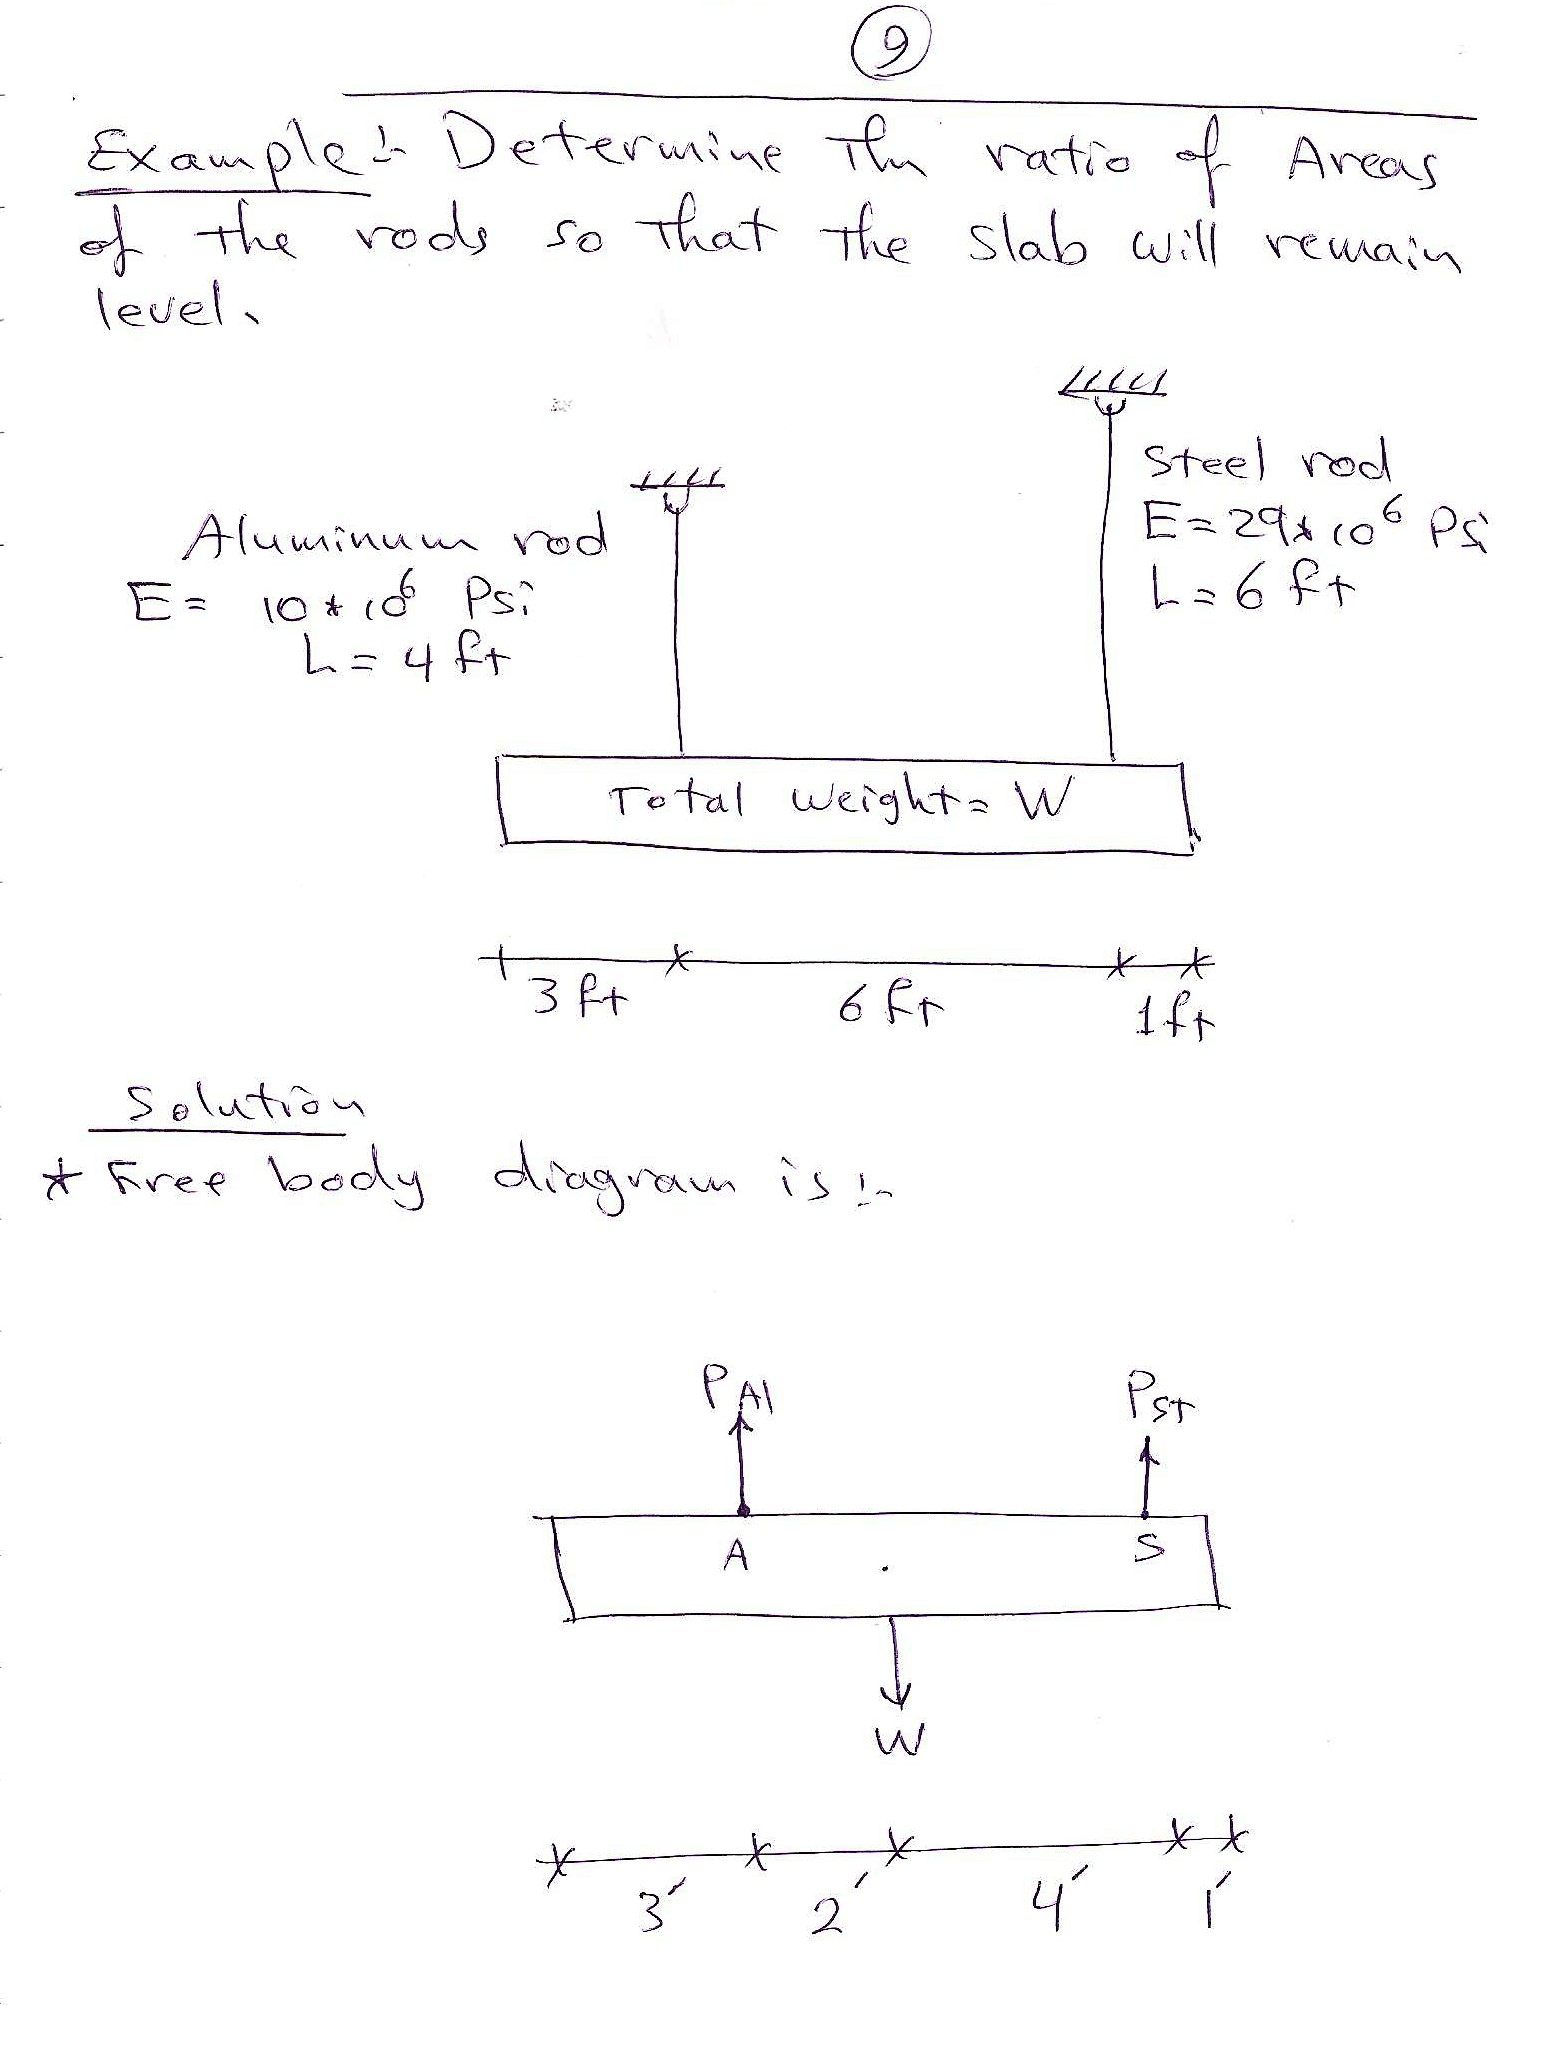 9
Example:- Determine The ratio of Areas
of the rods so that the slab will remain
level.
Steel rod
E = 29*10⁶ Psi
L = 6 ft
Aluminum rod
E = 10*10⁶ Psi
L = 4 ft
Total weight = W
3 ft 6 ft 1 ft
Solution
* Free body diagram is:-
PAl PST
A S
W
3' 2' 4' 1'